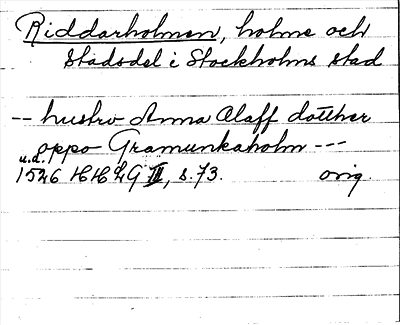 Riddarholmen, holme och
stadsdel i Stockholms stad
-- hustrv Anna Olaff dotther
oppo Gramunkaholm ---
u.d.
1526 HH LG III, s. 73. orig.